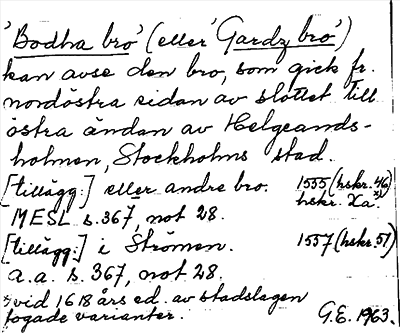 'Bodha bro' (eller 'Gardz bro')
kan avse den bro, som gick fr.
nordöstra sidan av slottet till
östra ändan av Helgeands-
holmen, Stockholms stad.
[tillägg:] eller andre bro. 1555 (hskr. 46)
MESL s. 367, not 28. hskr. Xa.x)
[tillägg:] i Strömen. 1557 (hskr. 51)
a.a. s. 367, not 28.
x) vid 1618 års ed. av stadslagen
fogade varianter. G.E. 1963.